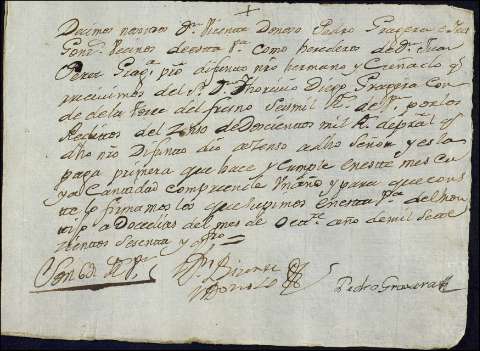 Dezimos nosotros Dn. Vizente Donoso Pedro Gragera
Gonz. Vezinos de esta Va. como herederos de Dn. Juan
Perez Grag.a nro difunto nro hermano y Cuñado q
rrecivimos del Sr. Dn. Thorivio Diego Gragera Con
de de la Torre del fresno Seismil Rs. de Vn. por los
Reditos del Zenso de Doscientos mil Rs. de pral. q
dho nro Difunto dio a Zenso a dho Señor y es la
paga primera que hace y Cumple en este mes cu
ya Cantidad comprende un año y para que cons
te lo firmamos los que supimos en esta Va. del
a Doce dias del mes de Octre. año de mil Sete
zientos Sesenta y
Son 6 Dn. Vizente
Donoso Pedro Gragera